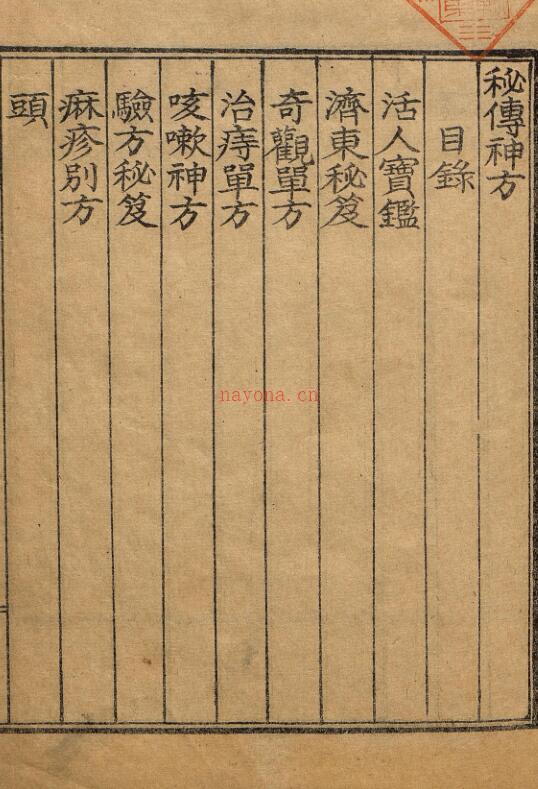 秘傳神方
目錄
活人寶鑑
濟東秘笈
奇觀單方
治痔單方
咳嗽神方
驗方秘笈
痳疹別方
頭
nayona.cn